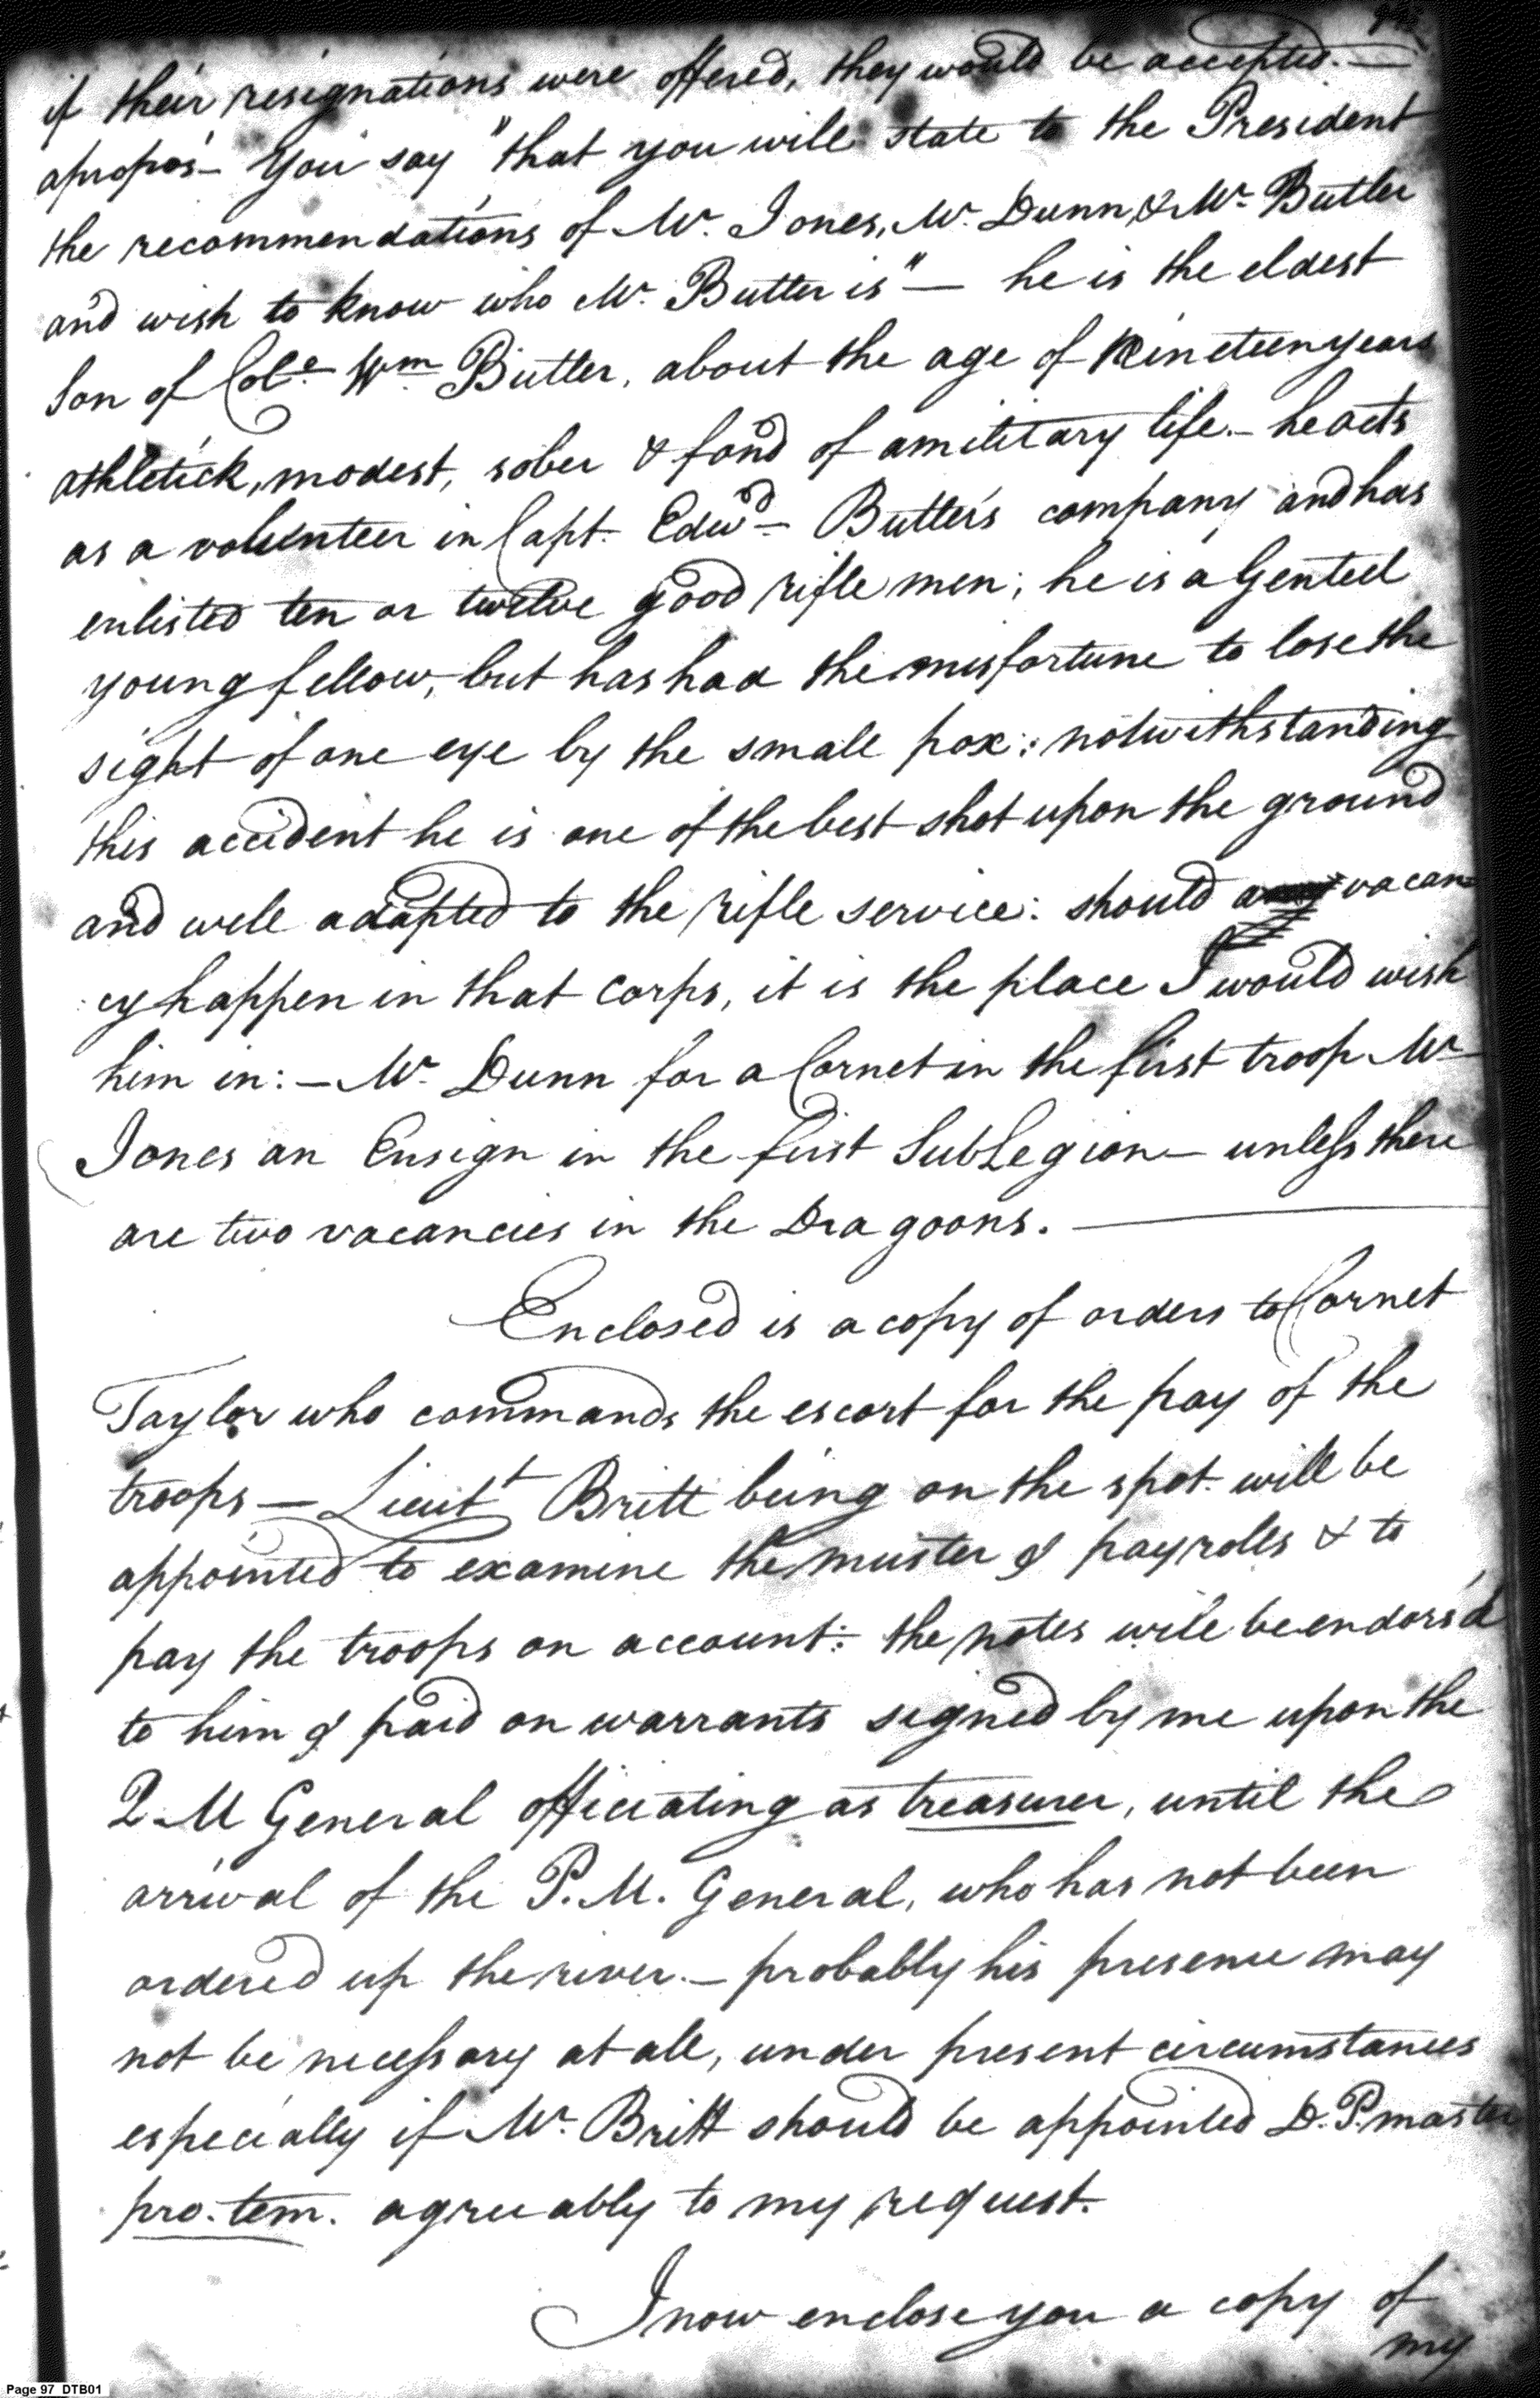 if their resignations were offered, they would be accepted. —
apropos — You say "that you will state to the President
the recommendations of Mr. Jones, Mr. Dunn, & Mr. Butler
and wish to know who Mr. Butler is" — he is the eldest
Son of Cole. Wm. Butler, about the age of Nineteen years
athletick, modest, sober & fond of a military life. — he acts
as a volunteer in Capt. Edwd. Butler's company and has
enlisted ten or twelve good rifle men; he is a Genteel
young fellow, but has had the misfortune to lose the
sight of one eye by the small pox: notwithstanding
this accident he is one of the best shot upon the ground
and well adapted to the rifle service: should a vacan
cy happen in that Corps, it is the place I would wish
him in: — Mr. Dunn for a Cornet in the first troop Mr.
Jones an Ensign in the first SubLegion — unless there
are two vacancies in the Dragoons. —
Enclosed is a copy of orders to Cornet
Taylor who commands the escort for the pay of the
troops — Lieut Britt being on the spot will be
appointed to examine the muster & pay rolls & to
pay the troops on account: the notes will be endors'd
to him & paid on warrants signed by me upon the
Q. M General officiating as treasurer, until the
arrival of the P. M. General, who has not been
ordered up the river. — probably his presence may
not be necessary at all, under present circumstances
especially if Mr. Britt should be appointed D. P. master
pro. tem. agreeably to my request.
I now enclose you a copy of
my
Page 97 DTB01